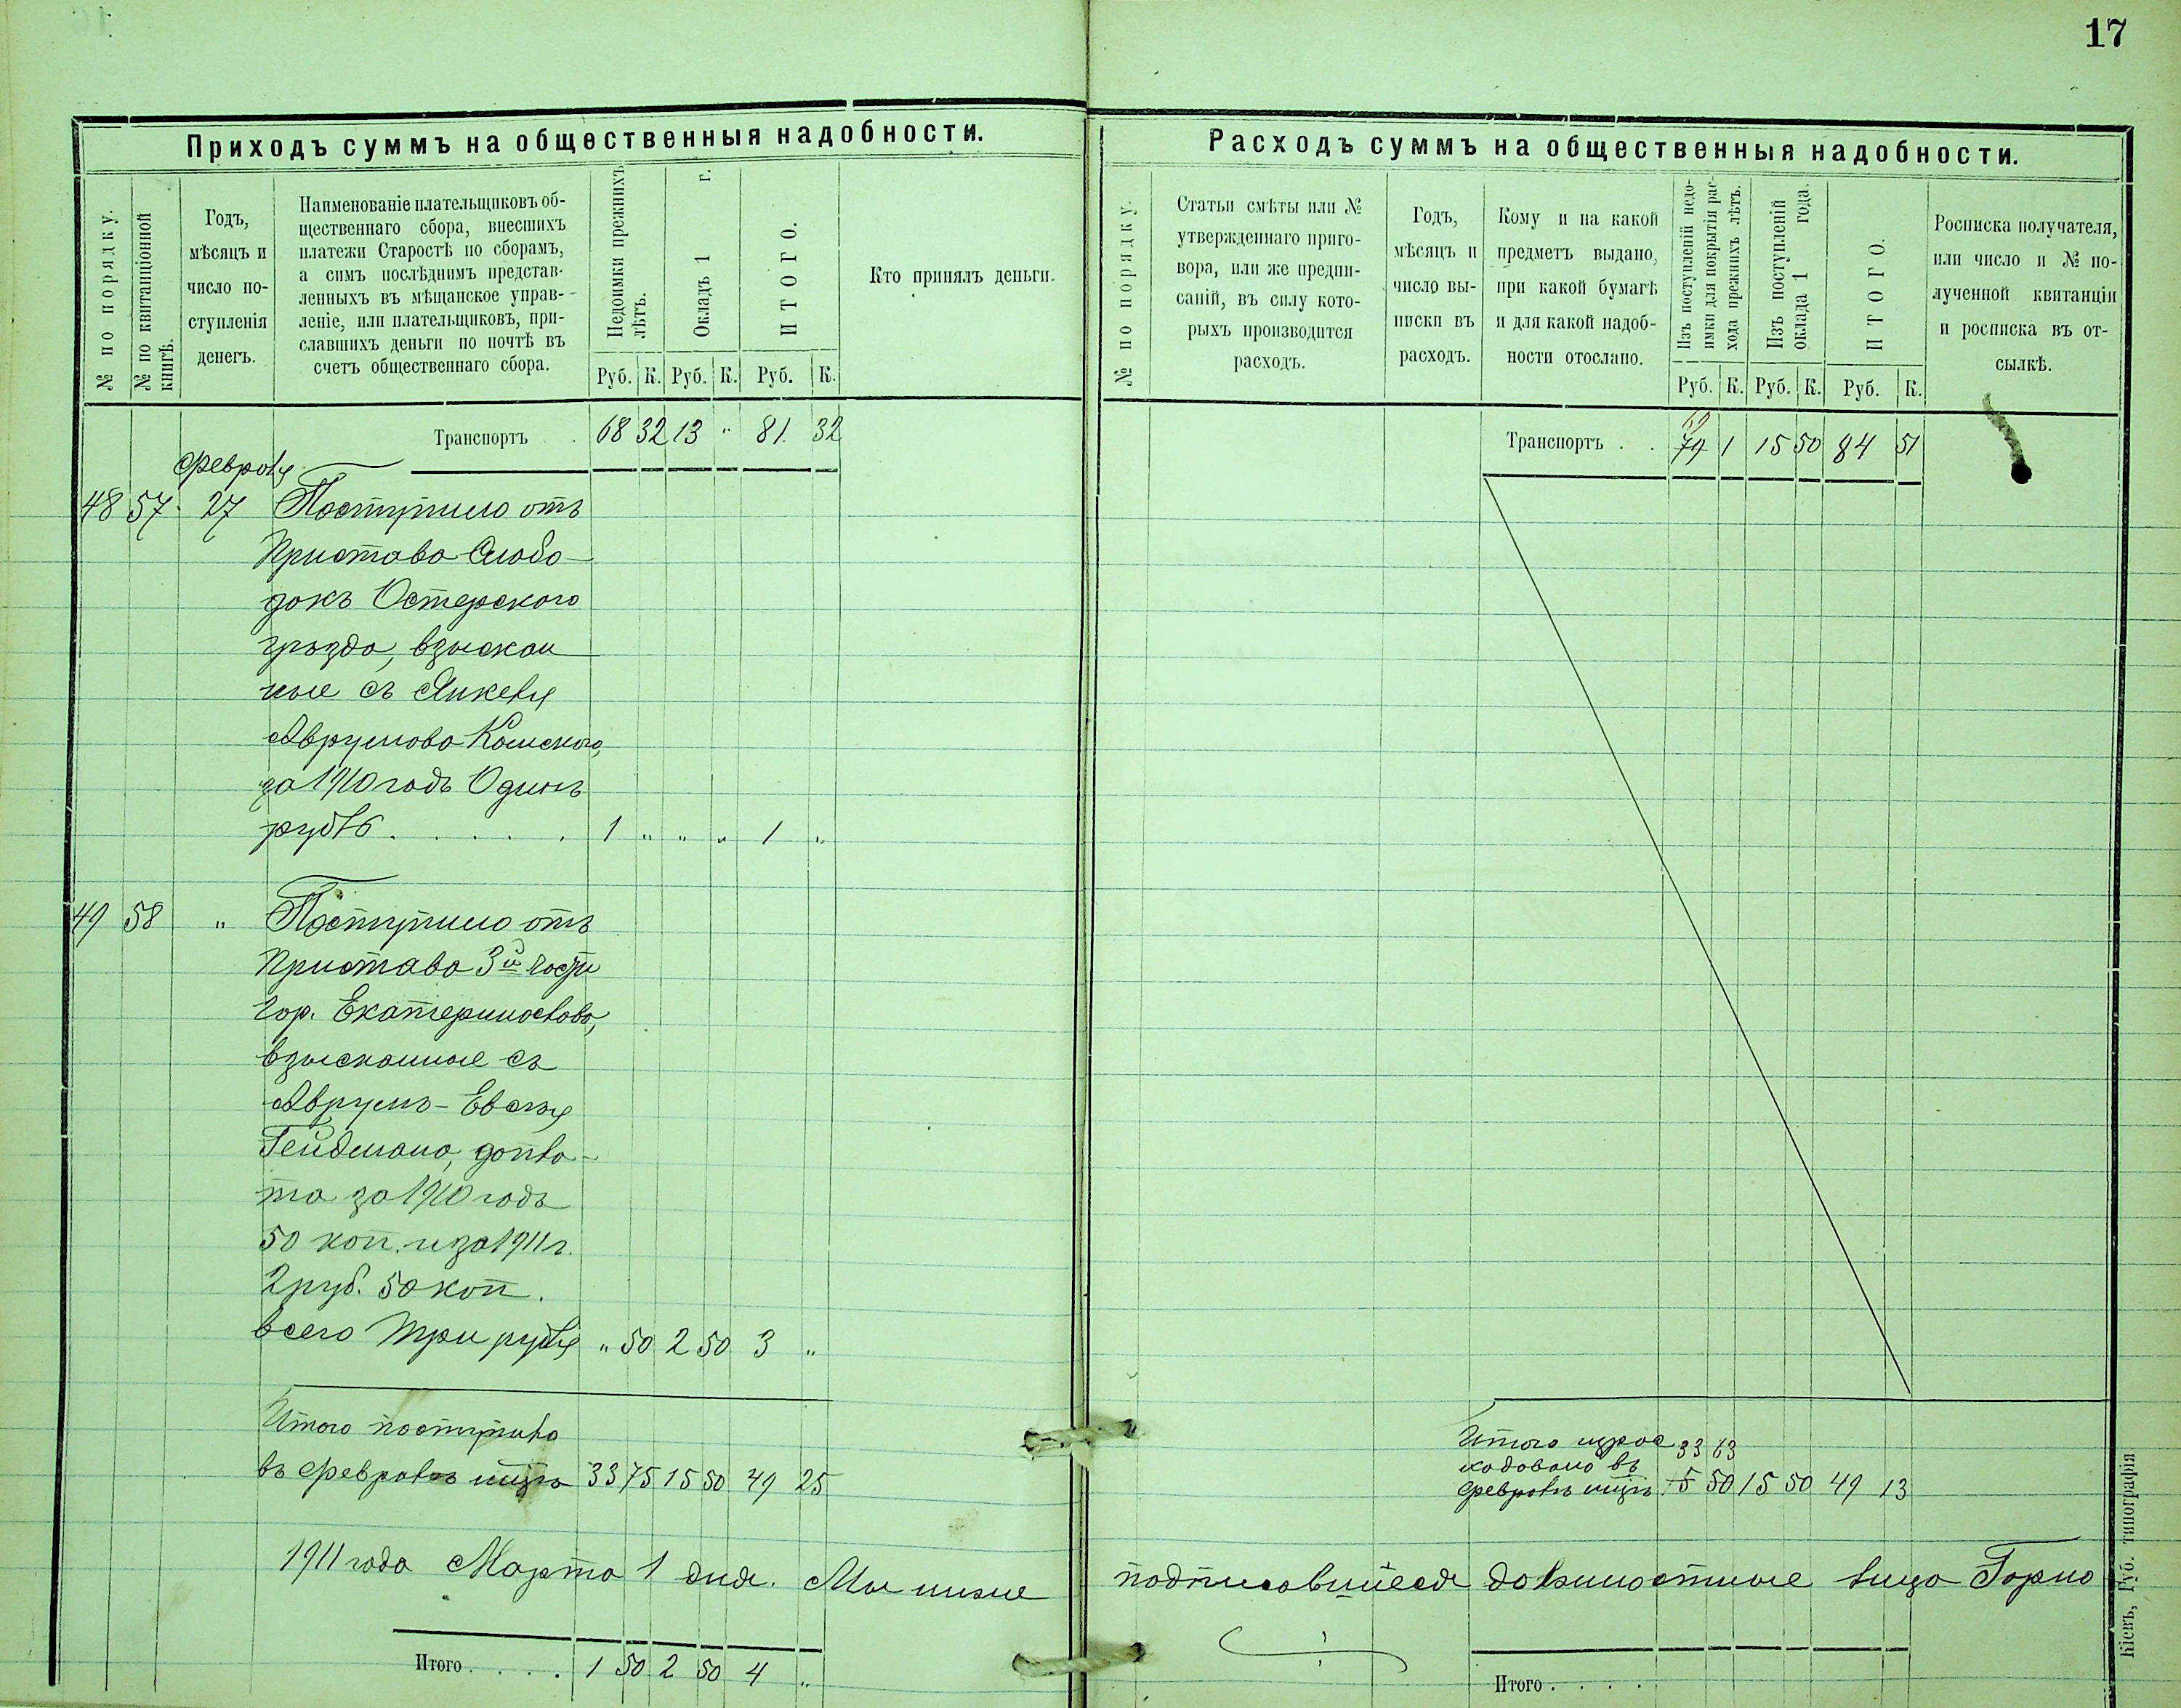 17
Приходъ суммъ на общественныя надобности.
№ по порядку.
№ по квитанціонной
книгѣ.
Годъ,
мѣсяцъ и
число по-
ступленія
денегъ.
Наименованіе плательщиковъ об-
щественнаго сбора, внесшихъ
платежи Старостѣ по сборамъ,
а симъ послѣднимъ представ-
ленныхъ въ мѣщанское управ-
леніе, или плательщиковъ, при-
славшихъ деньги по почтѣ въ
счетъ общественнаго сбора.
Недоимки прежнихъ
лѣтъ.
Окладъ 1 г.
ИТОГО.
Кто принялъ деньги.
Руб. К. Руб. К. Руб. К.
Транспортъ . . 68 32 13 " 81 32
Февраля
48 57 27 Поступило отъ
Пристава Слобо-
докъ Остерского
уѣзда, взыскан
ные съ Янкеля
Аврумова Каменского,
за 1910 годъ Одинъ
рубль . . . . . 1 " " " 1 "
49 58 " Поступило отъ
Пристава 3й части
гор. Екатеринослава,
взысканные съ
Аврумъ-Евсея
Гейдмана, допла-
та за 1910 годъ
50 коп. и за 1911 г.
2 руб. 50 коп.
всего три рубля " 50 2 50 3 "
Итого поступило
въ Февралѣ мцѣ 33 75 15 50 49 25
1911 года Марта 1 дня. Мы ниже
Итого . . . . 1 50 2 50 4 "
Расходъ суммъ на общественныя надобности.
№ по порядку.
Статьи смѣты или №
утвержденнаго приго-
вора, или же предпи-
саній, въ силу кото-
рыхъ производится
расходъ.
Годъ,
мѣсяцъ и
число вы-
писки въ
расходъ.
Кому и на какой
предметъ выдано,
при какой бумагѣ
и для какой надоб-
ности отослано.
Изъ поступленій недо-
имки для покрытія рас-
хода прежнихъ лѣтъ.
Изъ поступленій
оклада 1 года.
ИТОГО.
Росписка получателя,
или число и № по-
лученной квитанціи
и росписка въ от-
сылкѣ.
Руб. К. Руб. К. Руб. К.
69
Транспортъ . . 79 1 15 50 84 51
Итого израс 33 63
ходовано въ
Февралѣ мцѣ 5 50 15 50 49 13
подписавшіеся должностные лица Горно
Итого . . . .
Кіевъ, Губ. типографія